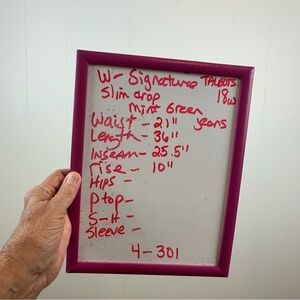 W- Signature TALBOTS
Slim crop 18w
mint Green
Waist - 21" jeans
Length - 36"
Inseam - 25.5"
rise - 10"
Hips -
Ptop -
S-H -
Sleeve -
4-301